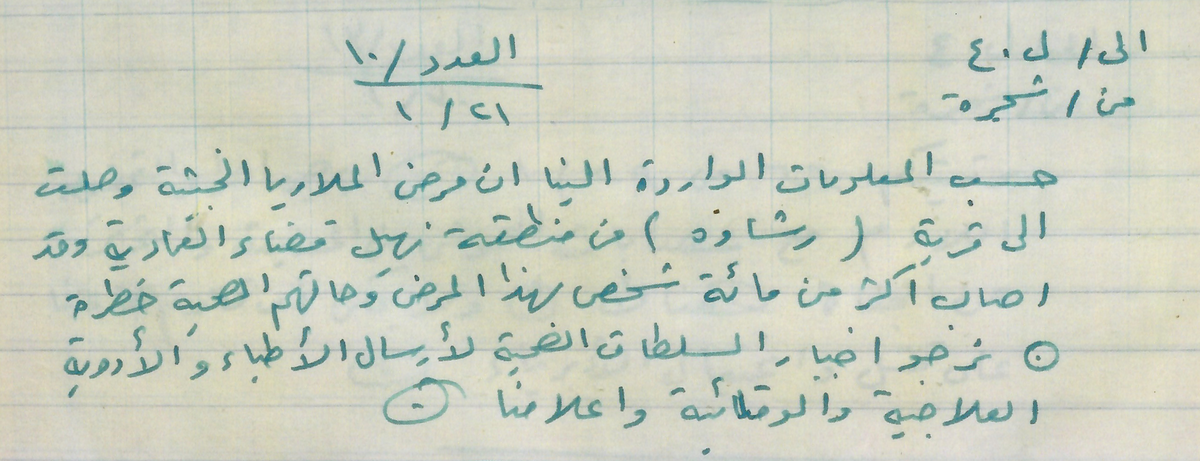 الى / ل ٤٠
العدد / ١٠
من / شجرة
٢١ / ١
حسب المعلومات الواردة الينا ان مرض الملاريا الخبيثة وصلت
الى قرية ( رشاوه ) من منطقة نهيل قضاء العمادية وقد
اصاب اكثر من مائة شخص بهذا المرض وحالتهم الصحية خطرة
⊙ نرجو اخبار السلطات الصحية لأرسال الأطباء والأدوية
العلاجية والوقائية واعلامنا ⊙